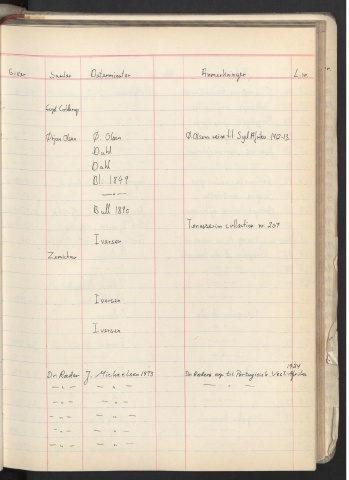 Giver Samler Determinator Anmerkninger L.nr.
Ørjan Olsen Ø. Olsen Ø Olsens reise til Syd Afrika 1912-13
Dahl
Dahl
Bl. 1849
— „ —
Ball 1890
Tenasserim collection nr. 209
Iversen
Iversen
Iversen
1934
Dr. Røder J. Michaelsen 1973 Dr. Røders exp. til Portugisisk Vest-Afrika
— „ — — „ — — „ —
— „ — — „ —
— „ — — „ —
— „ — — „ —
— „ — — „ —